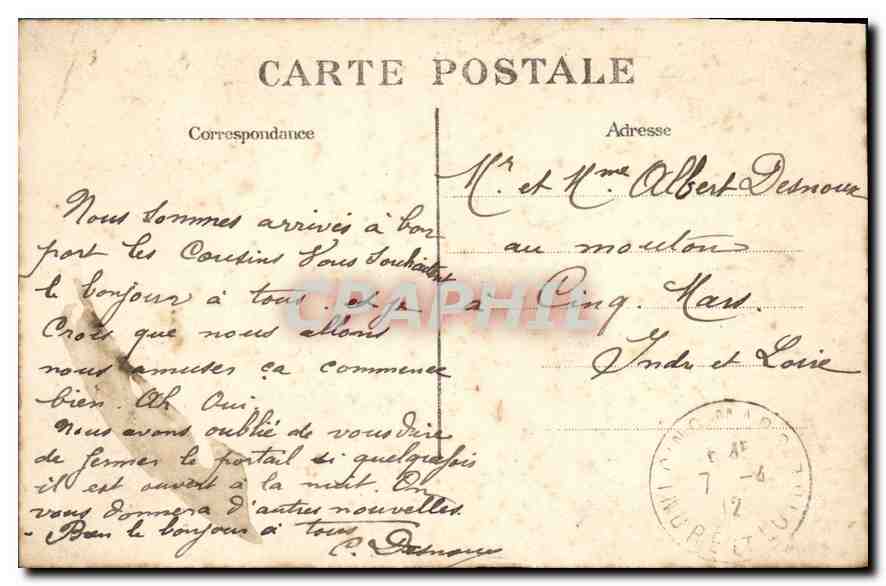 CARTE POSTALE
Correspondance
Adresse
Nous sommes arrivés à bon
port les Cousins Vous Souhaitent
le bonjour à tous et je
crois que nous allons
nous amuser ça commence
bien. Ah Oui.
Nous avons oublié de vous dire
de fermer le portail si quelquefois
il est ouvert à la nuit. On
vous donnera d'autres nouvelles.
Bien le bonjour à tous
C. Desnoux
Mr et Mme Albert Desnoux
au mouton
à Cinq. Mars.
Indre et Loire
CPAPHIL
CINQ-MARS
7 -4
12
INDRE ET